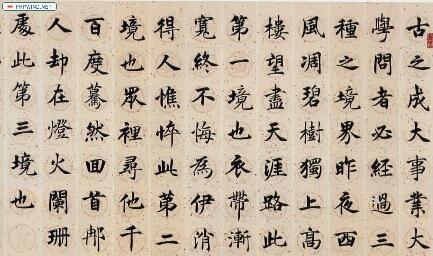 PHPWIND.NET
古之成大事業大
學問者必經過三
種之境界昨夜西
風凋碧樹獨上高
樓望盡天涯路此
第一境也衣帶漸
寬終不悔為伊消
得人憔悴此第二
境也眾裡尋他千
百度驀然回首那
人却在燈火闌珊
處此第三境也